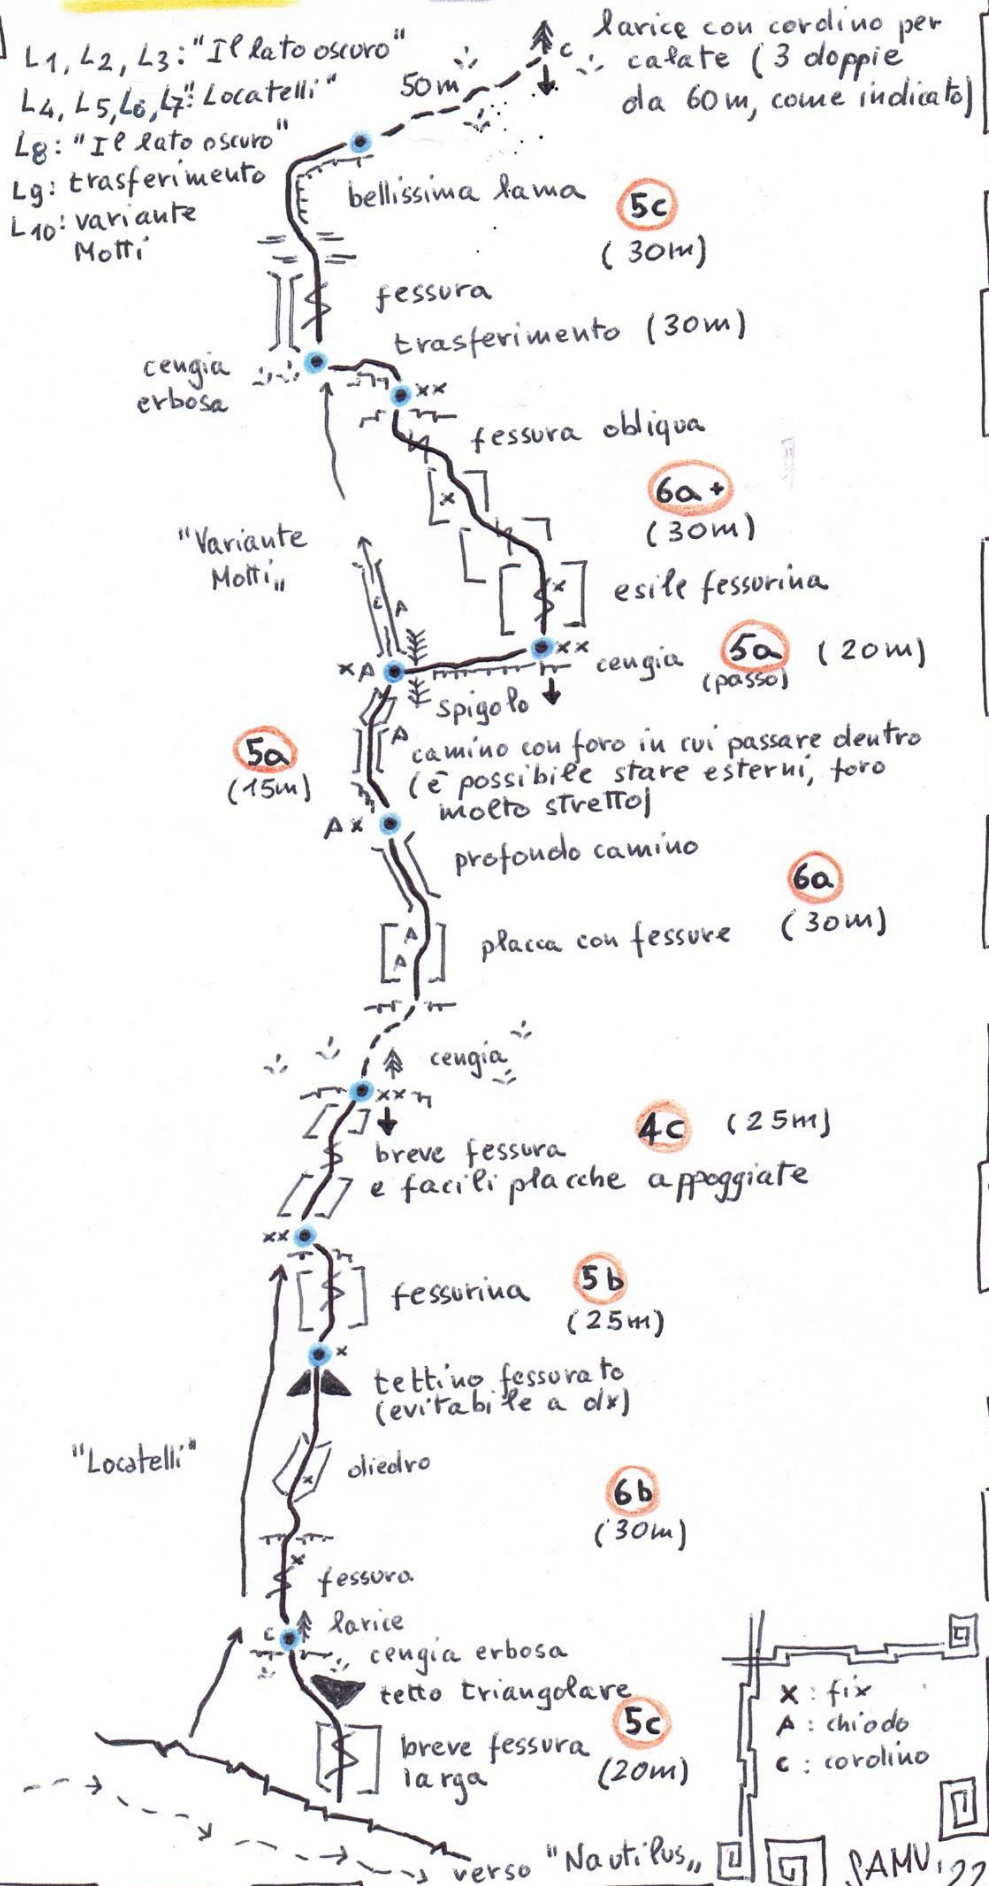 L1, L2, L3: "Il lato oscuro"
L4, L5, L6, L7: "Locatelli"
L8: "Il lato oscuro"
L9: trasferimento
L10: variante
Motti
larice con cordino per
calate (3 doppie
da 60m, come indicato)
c
50m
bellissima lama
5c
(30m)
fessura
trasferimento (30m)
cengia
erbosa
xx
fessura obliqua
x
6a+
(30m)
"Variante
Motti"
c A
x
esile fessurina
xx
x A
cengia 5a (20m)
(passo)
spigolo
5a
(15m)
A
camino con foro in cui passare dentro
(è possibile stare esterni, foro
molto stretto)
A x
profondo camino
6a
(30m)
A
A
placca con fessure
cengia
xx
4c (25m)
breve fessura
e facili placche appoggiate
xx
fessurina
5b
(25m)
x
tettino fessurato
(evitabile a dx)
"Locatelli"
diedro
x
6b
(30m)
x
fessura
c
larice
cengia erbosa
tetto triangolare
5c
(20m)
breve fessura
larga
x : fix
A : chiodo
c : cordino
verso "Nautilus"
SAMU '22